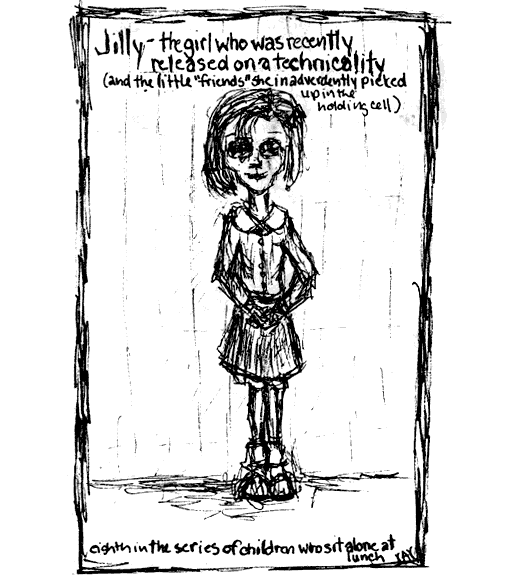 Jilly - the girl who was recently
released on a technicality
(and the little "friends" she inadverdently picked
up in the
holding cell)
eighth in the series of children who sit alone at
lunch